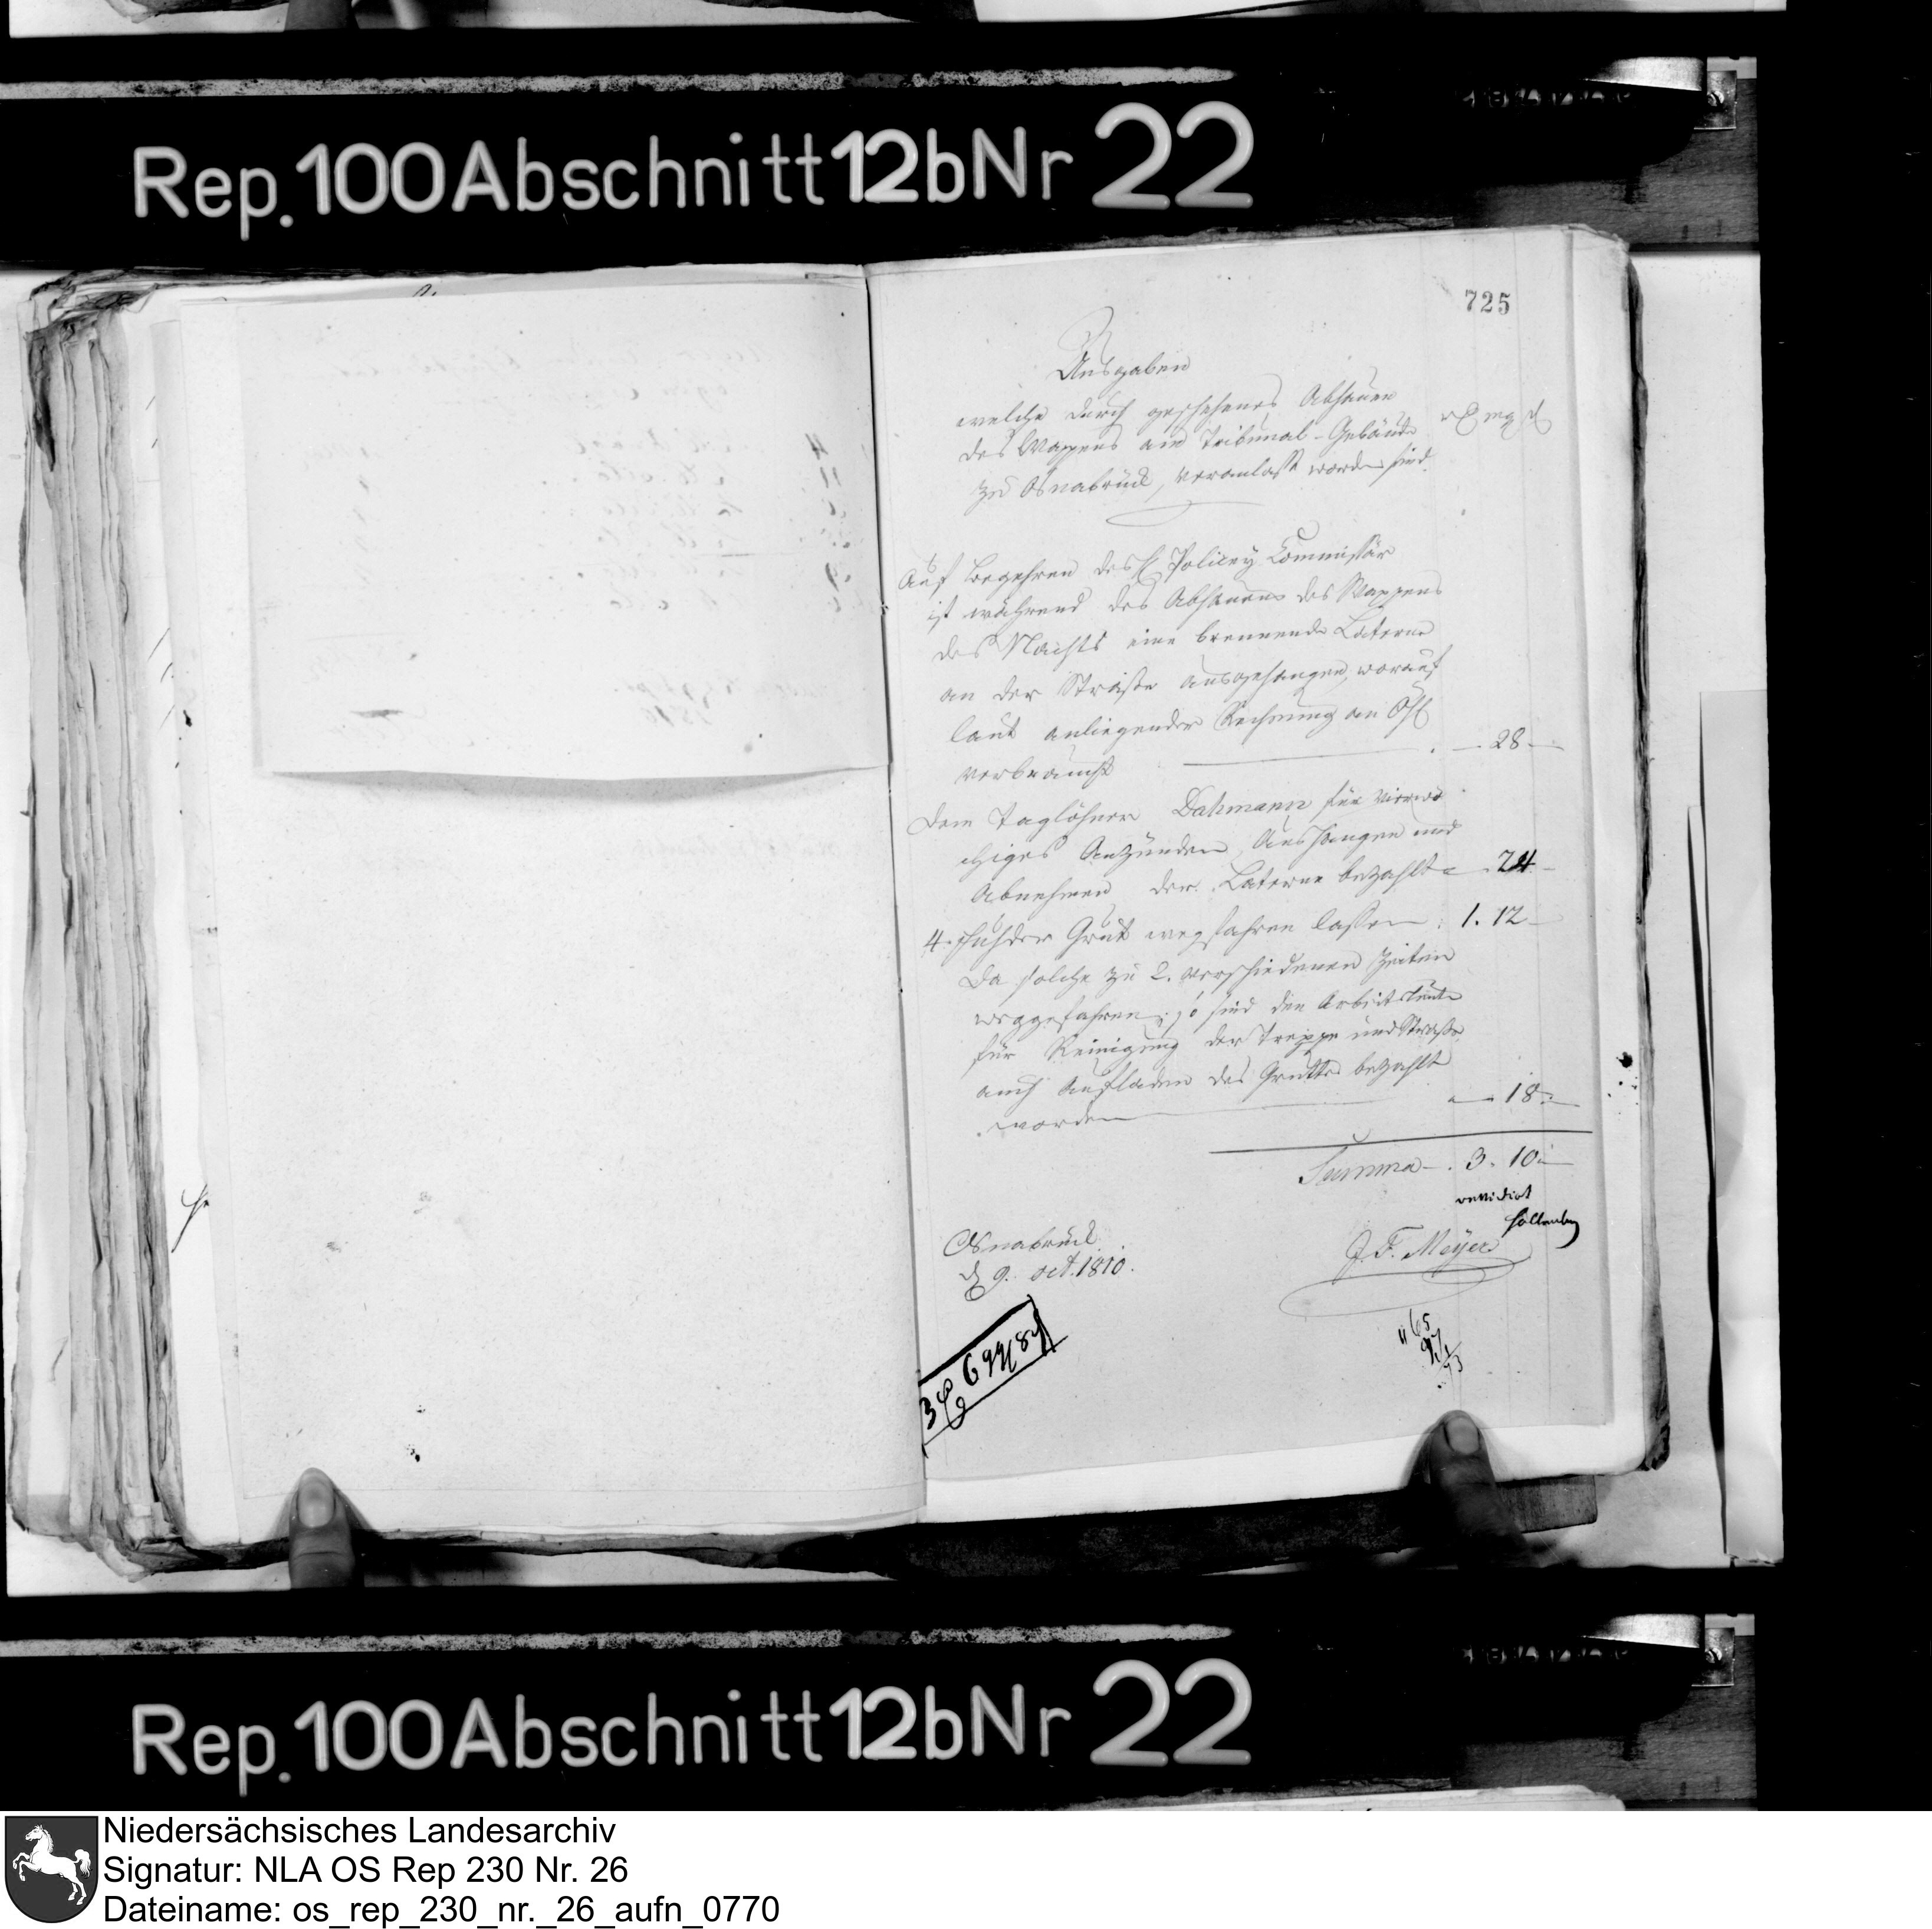 Rep. 100 Abschnitt 12b Nr 22
725
Ausgaben
welche durch geschehenes Abhauen
des Wappens am Tribunal-Gebäude
zu Osnabrück, veranlasst worden sind.
Auf Begehren des H Policey Commissär
ist während des Abhauens des Wappens
des Nachts eine brennende Laterne
an der Straße ausgehangen, worauf
laut anliegender Rechnung an Öhl
verbraucht . — 28 —
dem Taglöhner Dahmann für vierwö
chiges Anzünden, Aushangen und
Abnehmen der Laterne bezahlt — 24 —
4. Fuhder Grut wegfahren lassen : 1. 12 —
da solche zu 2. verschiedenen Zeiten
weggefahren; so sind den Arbeitsleute
für Reinigung der Treppe und Straße
auch Aufladen des Grutts bezahlt
worden — 18 —
Summa —. 3. 10 —
revidirt
Hollenberg
Osnabrück
d 9. oct. 1810.
J. F. Meyer
Rep. 100 Abschnitt 12b Nr 22
Niedersächsisches Landesarchiv
Signatur: NLA OS Rep 230 Nr. 26
Dateiname: os_rep_230_nr._26_aufn_0770